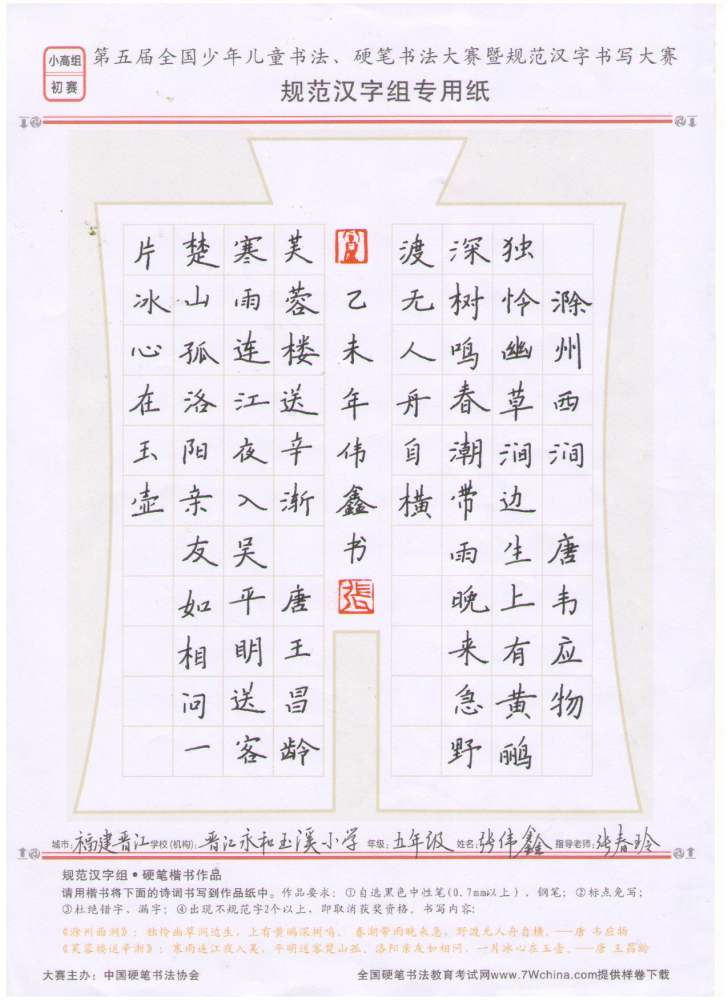 小高组
初赛
第五届全国少年儿童书法、硬笔书法大赛暨规范汉字书写大赛
规范汉字组专用纸
滁州西涧 唐韦应物
独怜幽草涧边生上有黄鹂
深树鸣春潮带雨晚来急野
渡无人舟自横
乙未年伟鑫书
張
芙蓉楼送辛渐 唐王昌龄
寒雨连江夜入吴平明送客
楚山孤洛阳亲友如相问一
片冰心在玉壶
城市:福建晋江 学校(机构):晋江永和玉溪小学 年级:五年级 姓名:张伟鑫 指导老师:张春玲
规范汉字组•硬笔楷书作品
请用楷书将下面的诗词书写到作品纸中。作品要求:①自选黑色中性笔(0.7mm以上)、钢笔;②标点免写;
③杜绝错字、漏字;④出现不规范字2个以上,即取消获奖资格。书写内容:
《滁州西涧》:独怜幽草涧边生,上有黄鹂深树鸣。春潮带雨晚来急,野渡无人舟自横。——唐 韦应物
《芙蓉楼送辛渐》:寒雨连江夜入吴,平明送客楚山孤。洛阳亲友如相问,一片冰心在玉壶。——唐 王昌龄
大赛主办:中国硬笔书法协会
全国硬笔书法教育考试网www.7Wchina.com提供样卷下载